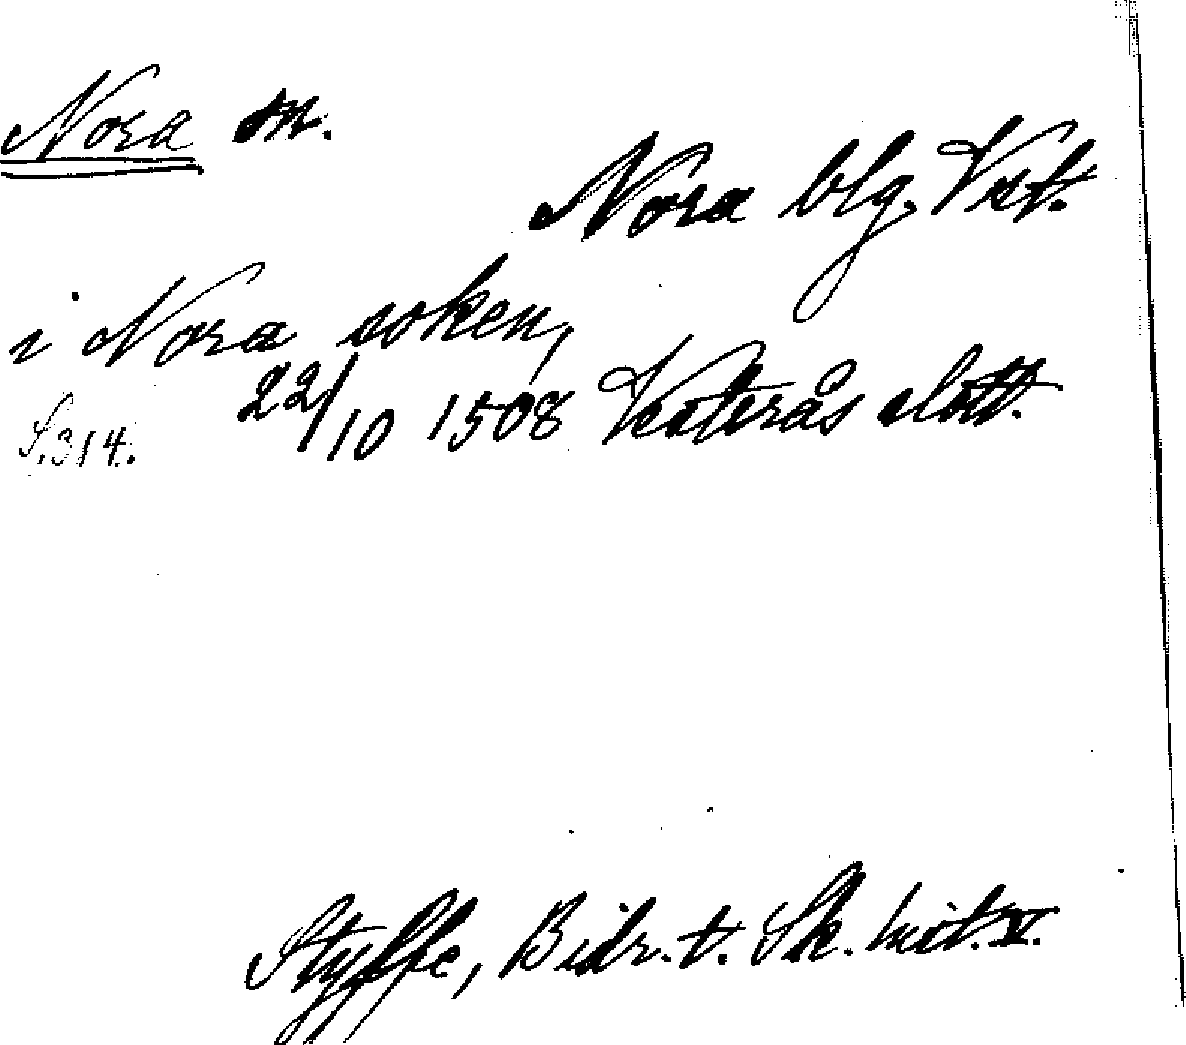 Nora sn.
Nora blg. Vst.
i Nora soken,
22/10 1508 Vesterås slott.
S. 314.
Styffe, Bidr. t. Sk. hist. V.